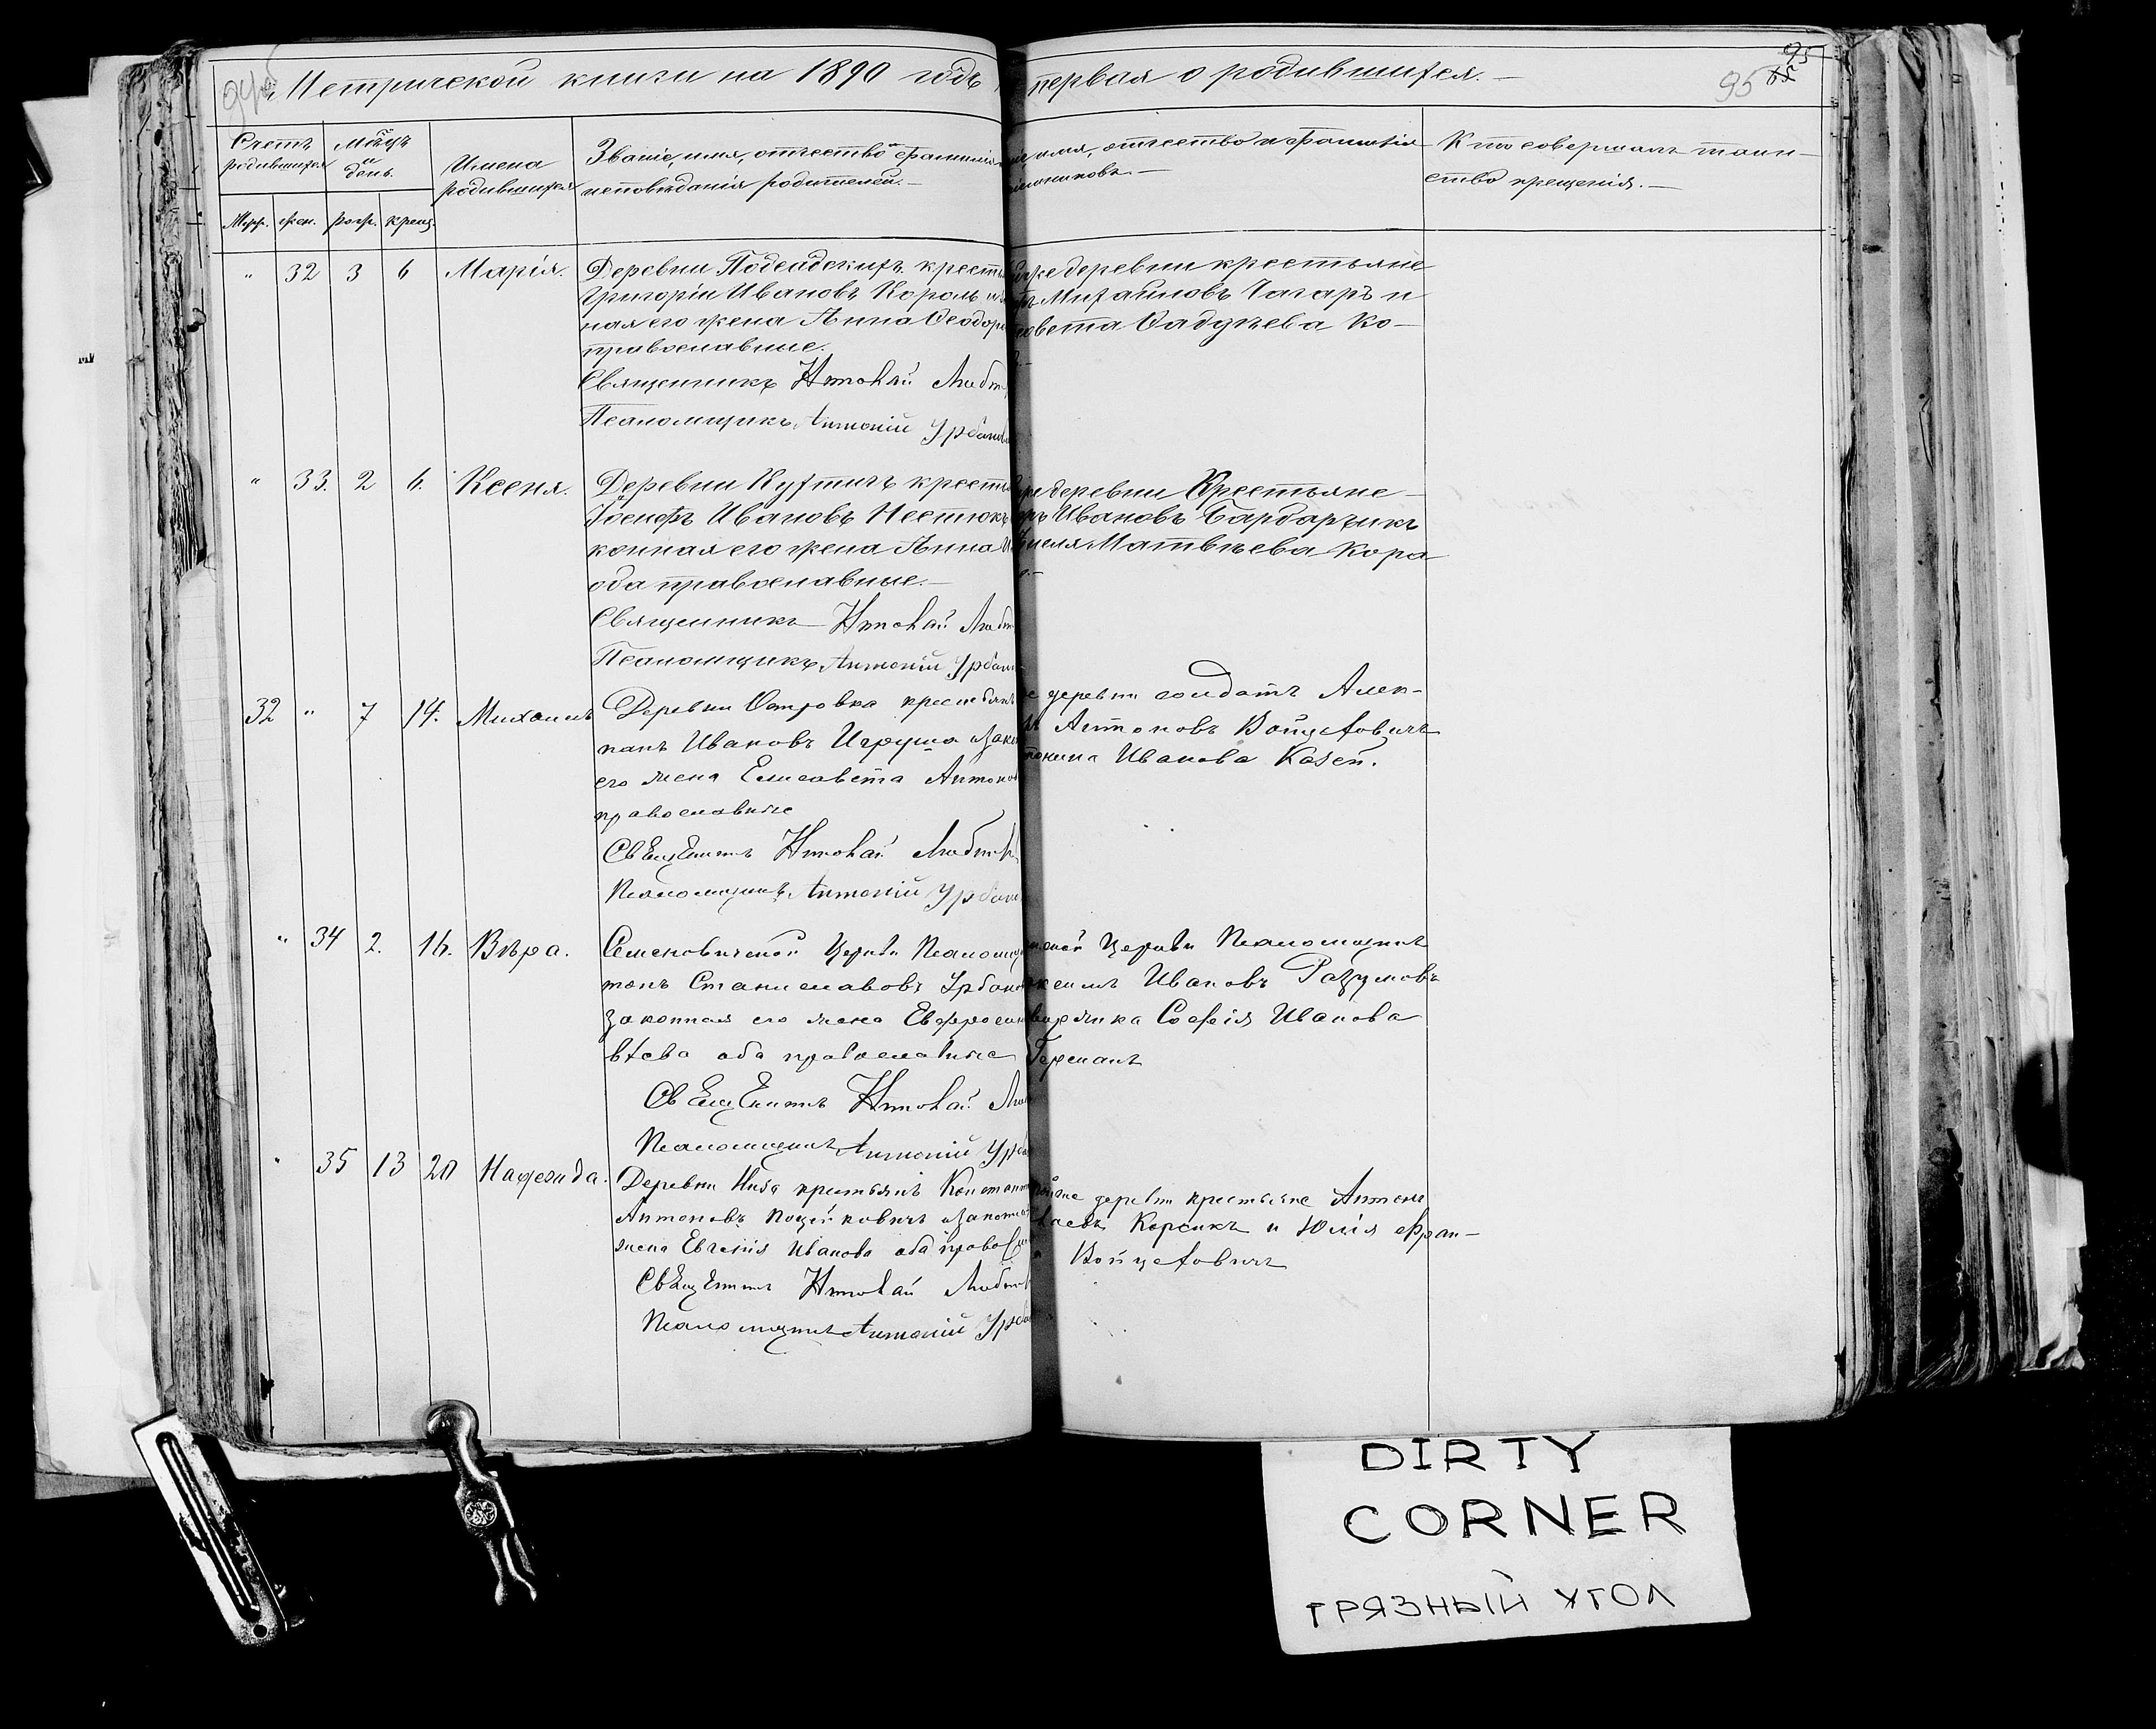 Метрической книги на 1890 годъ
первая о родившихся.—
95
95
Счетъ родившихся
Мѣсяцъ и день.
Имена родившихся
Званіе, имя, отчество и фамилія
исповѣданія родителей.—
имя, отчество и фамилія
Кто совершалъ таин-
ство крещенія.—
Муж. жен. рож. крещ.
" 32 3 6 Марія.
Деревни Подсадскихъ крестья
Григорій Ивановъ Король и
ная его жена Анна Ѳеодоро
православные.
Священникъ Любт
Псаломщикъ Антоній Урбано
деревни крестьяне
Михаиловъ Чагаръ и
совета Фадѣева Ко-
" 33. 2 6. Ксеня.
Деревни Кухтичъ крестья
Іосифъ Ивановъ Нестюкъ
конная его жена Анна
оба православные.—
Священникъ Люб
Псаломщикъ Антоній Урбан
деревни Крестьяне
Ивановъ Барбарчикъ
Матвѣева Кора
32 " 7 14. Михаилъ
Деревни Островка крестьянинъ
Ивановъ Игруша и зако
его жена Елисавета Антонов
православные
Священникъ Любт
Псаломщикъ Антоній Урбан
деревни солдатъ Алек-
Антоновъ Войцеховичъ
Иванова Казей.
" 34 2. 16. Вѣра.
Семеновичской Церкви Псаломщ
тонъ Станиславовъ Урбано
законная его жена Евфросин
вѣева оба православные
Священникъ
Псаломщикъ Антоній Урб
Церкви Псаломщикъ
Ивановъ Разумовъ
Софія Иванова
Германъ
" 35 13 20 Надежда.
Деревни Нида крестьянинъ Констант
Антоновъ и законная
жена Евгенія Иванова оба правосл
Священникъ Любт
Псаломщикъ Антоній Урба
деревни крестьяне Антонъ
Корсикъ и Юлія Фран-
Войцеховичъ
DIRTY
CORNER
ГРЯЗНЫЙ УГОЛ